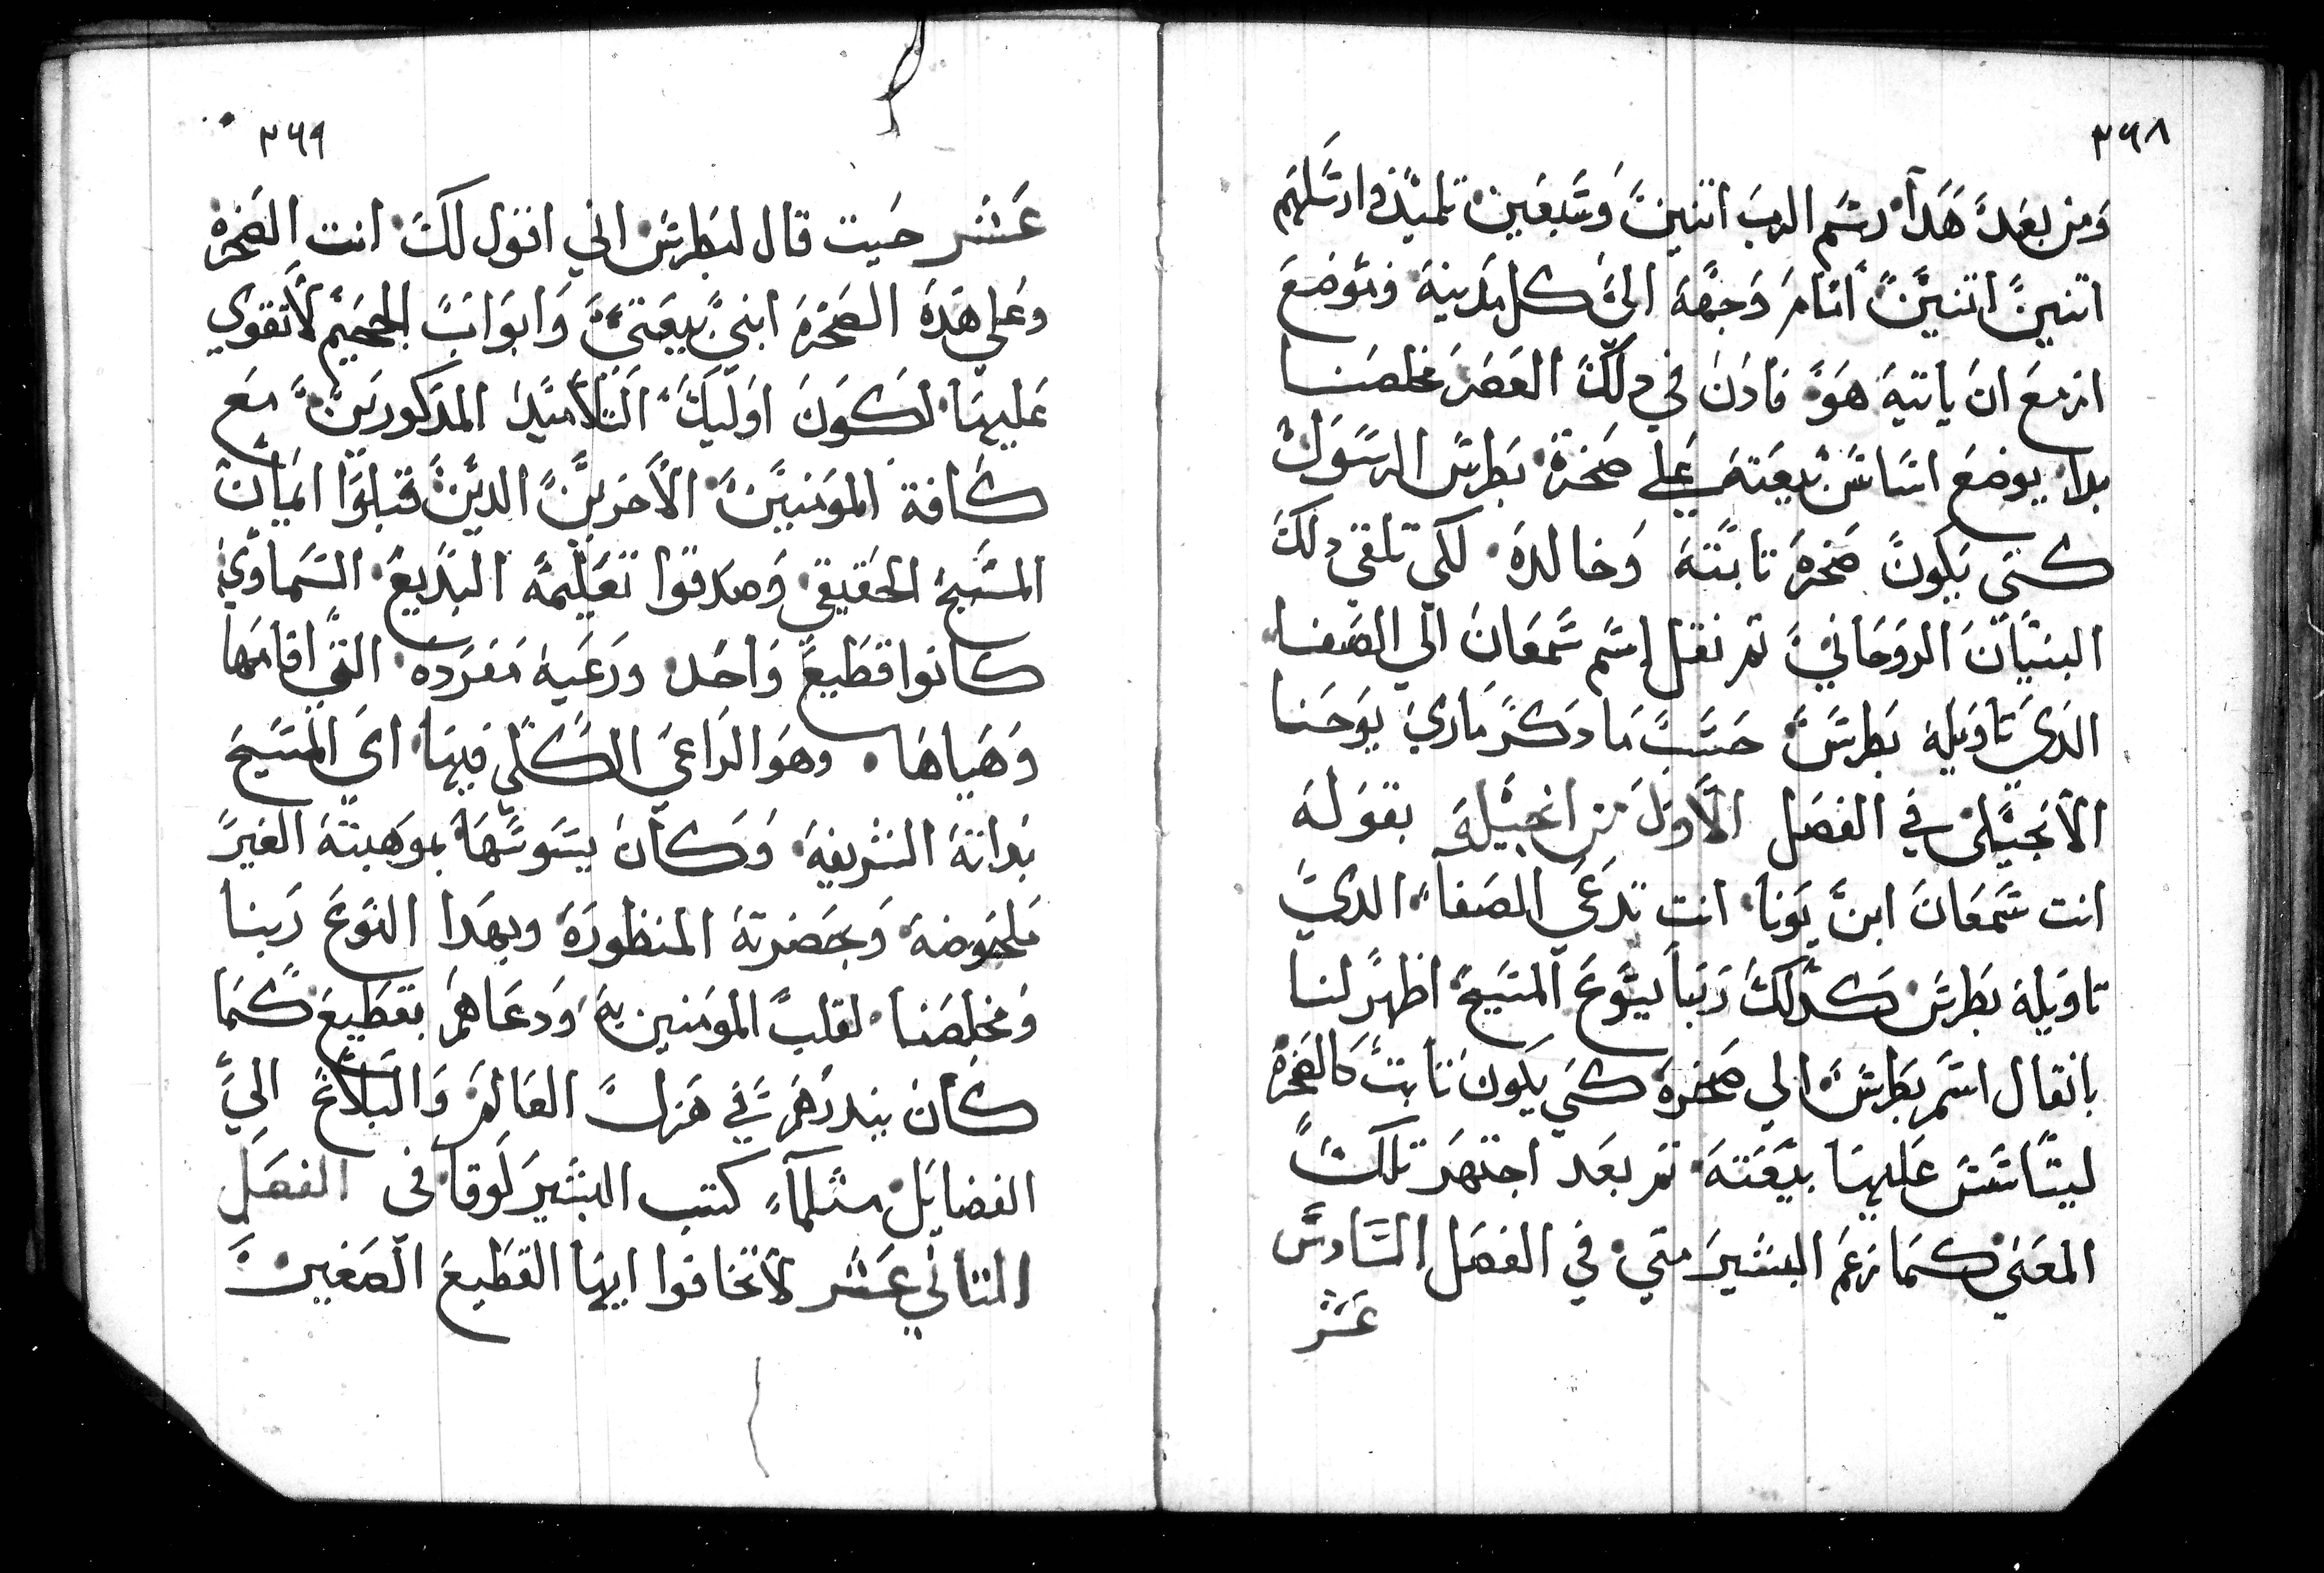 ٣٦٨
ومن بعد هدا رسم الرب اتنين وسبعين تلميذ وارسلهم
اتنين اتنين امام وجهه الى كل مدينة وموضع
ازمع ان ياتيه هو فادن في دلك العصر مخلصنا
بدا يوضع اساس بيعته على صخرة بطرس الرسول
كي يكون صخره تابته وخالده لكي تلقي دلك
البنيان الروحاني تم نقل إسم سمعان الي الصفا
الدي تاويله بطرس حسب ما دكر ماري يوحنا
الأنجيلى في الفصل الأول من انجيله بقوله
انت سمعان ابن يونا انت تدعي الصفا الدي
تاويله بطرس كدلك ربنا يسوع المسيح اظهر لنا
بانقال اسم بطرس الي صخرة كي يكون تابت كالصخره
ليتاسس عليها بيعته تم بعد اجتهد تلك
المعنى كما زعم البشير متي في الفصل السادس
عشر
٣٦٩
عشر حيت قال لبطرس اني اقول لك انت الصخره
وعلي هده الصخره ابني بيعتي وابواب الجحيم لأتقوي
عليها لكون اوليك التلأميد المدكورين مع
كافة المومنين الأخرين الدين قبلوا ايمان
المسيح الحقيقي وصدقوا تعليمه البديع السماوي
كانوا قطيع واحد ورعية مفرده التي اقامها
وهياها وهو الراعي الكلي فيها اي المسيح
بداته الشريفة وكان يسوسها بموهبته الغير
ملحوضة وبحضرته المنظورة وبهدا النوع ربنا
ومخلصنا لقلب المومنين به ودعاهم بقطيع كما
كان بيندرهم في هزل العالم والبلأغ الي
الفضايل متلما كتب البشير لوقا فى الفصل
التاني عشر لأتخافوا ايها القطيع الصغير